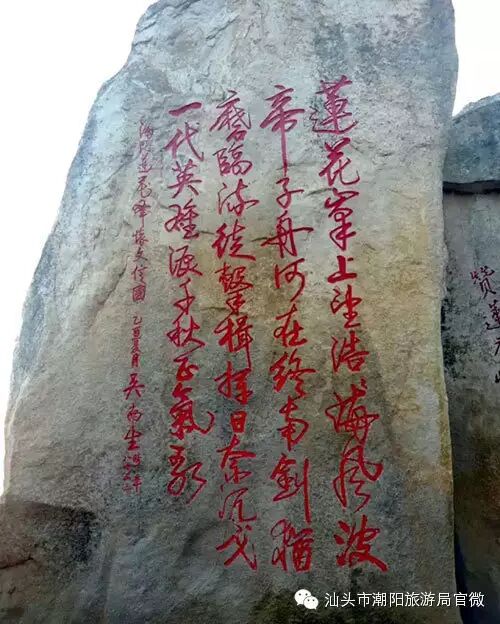 蓮花峯上望浩〻海風波
帝子舟何在終南劍猶
磨臨流徒擊楫揮日奈沉戈
一代英雄淚千秋正氣歌
潮陽蓮花峰懷文信國 乙丑夏月 吳南生
汕头市潮阳旅游局官微